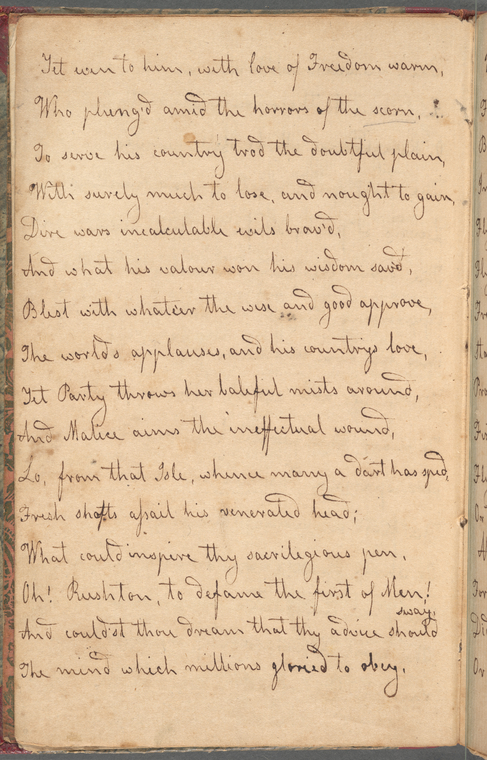 Yet even to him, with love of Freedom warm,
Who plung'd amid the horrors of the scorn,
To serve his country trod the doubtful plain,
With surely much to lose, and nought to gain,
Dire wars incalculable evils brav'd,
And what his valour won his wisdom sav'd,
Blest with whate'er the wise and good approve,
The world's applauses, and his countrys love,
Yet Party throws her baleful mists around,
And Malice aims the ineffectual wound,
Lo, from that Isle, whence many a dart has sped,
Fresh shafts assail his venerated head;
What could inspire thy sacrilegious pen,
Oh! Rushton, to defame the first of Men!
sway,
And could'st thou dream that thy advice should
The mind which millions gloried to obey.